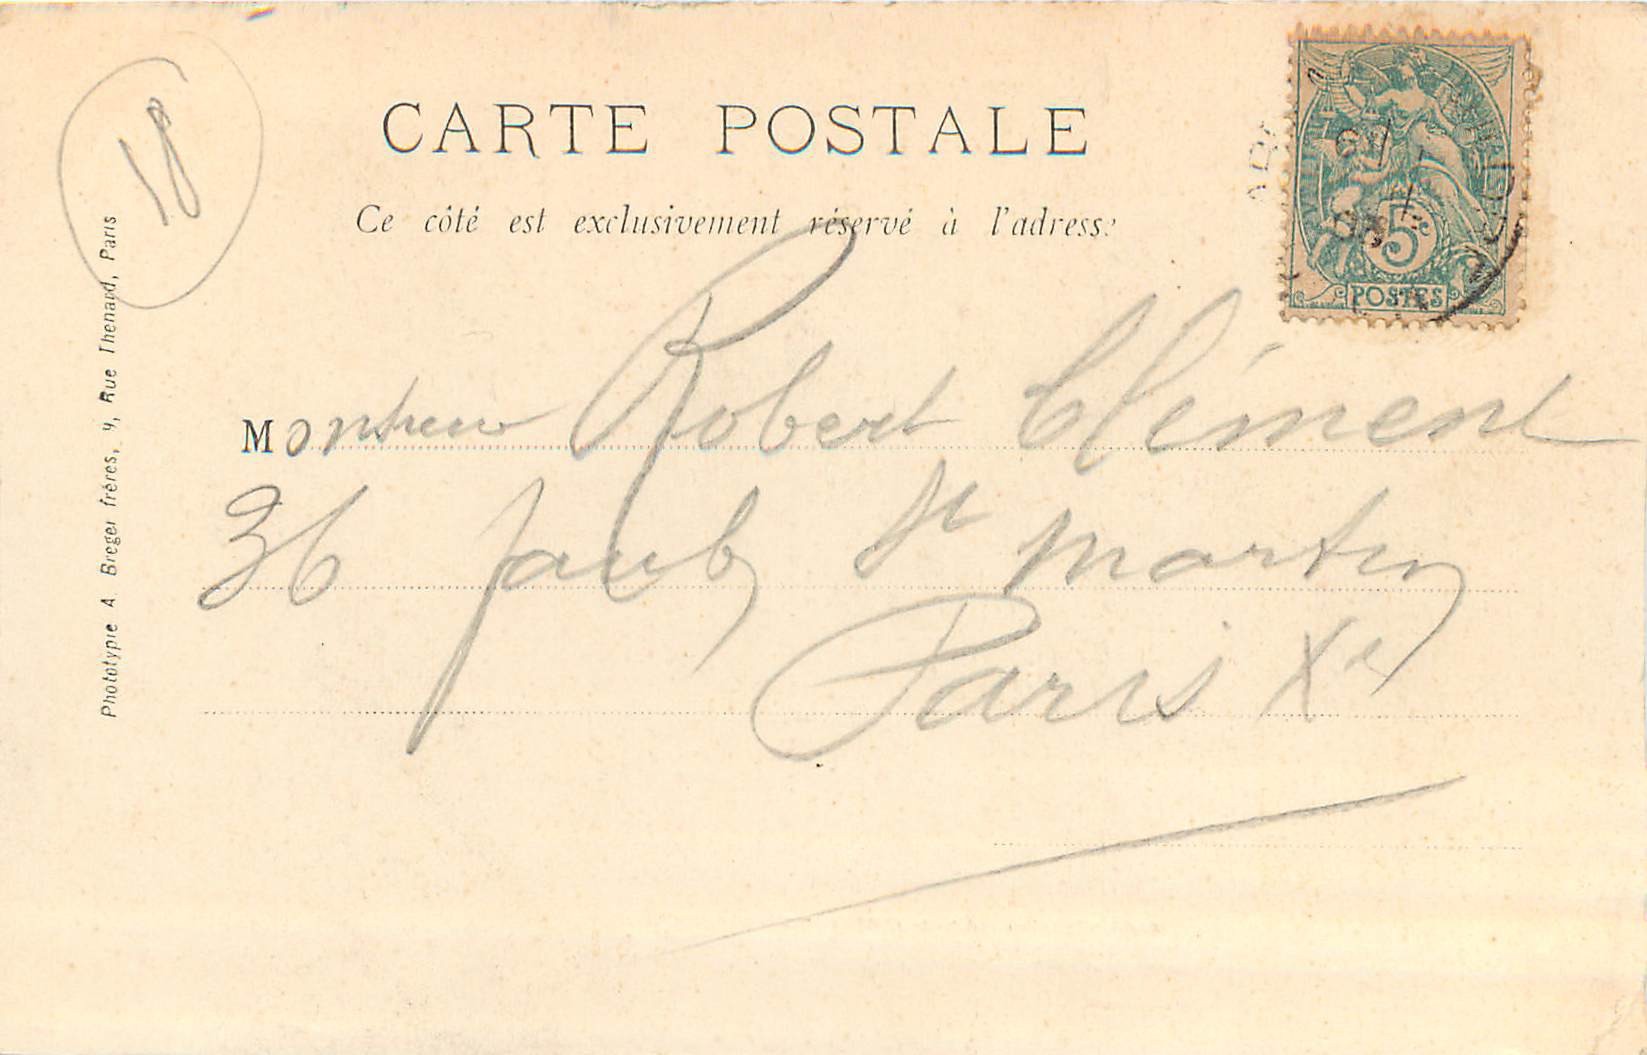 CARTE POSTALE
Ce côté est exclusivement réservé à l'adresse
18
5c
POSTES
Monsieur Robert Clément
36 faubg St Martin
Paris Xe
Phototypie A. Breger frères, 9, Rue Thenard, Paris